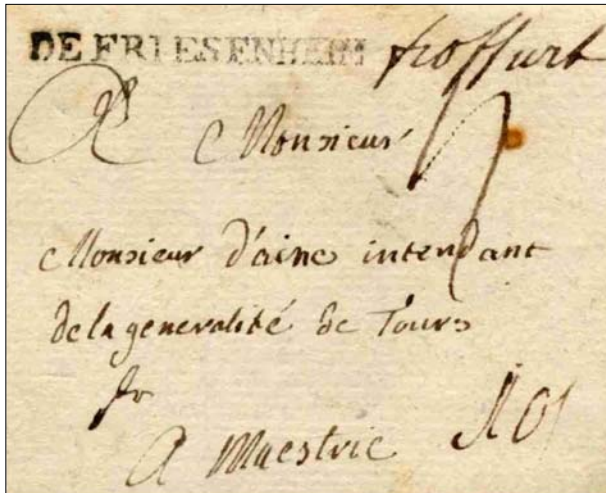 DE FRIESENHEIM
A Monsieur
Monsieur d'aine intendant
de la generalité de Tours
fr
A Maestric